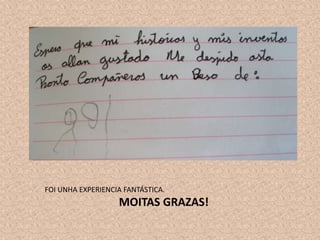 Espero que mi historias y mis inventos
os allan gustado Me despido asta
Pronto Compañeros un Beso de:
FOI UNHA EXPERIENCIA FANTÁSTICA.
MOITAS GRAZAS!